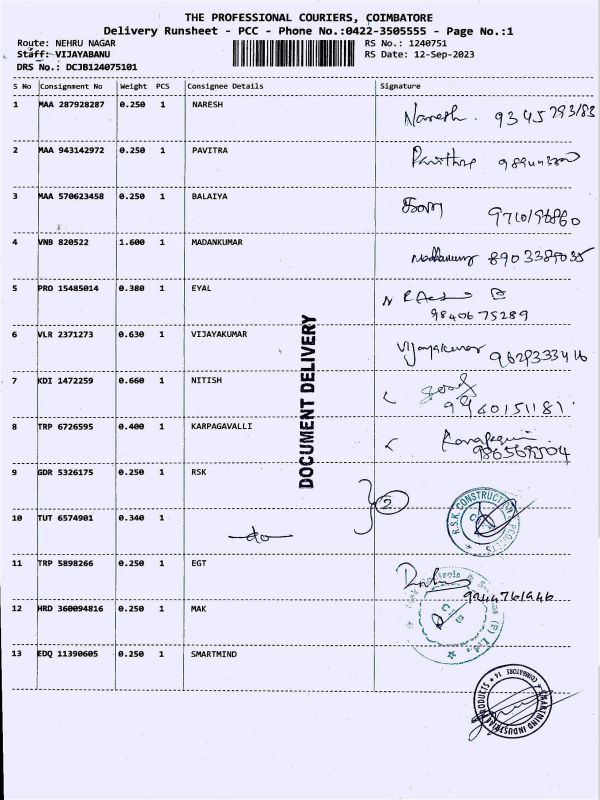 THE PROFESSIONAL COURIERS, COIMBATORE
Delivery Runsheet - PCC - Phone No.:0422-3505555 - Page No.:1
Route: NEHRU NAGAR RS No.: 1240751
Staff: VIJAYABANU RS Date: 12-Sep-2023
DRS No.: DCJB124075101
S No Consignment No Weight PCS Consignee Details Signature
1 MAA 287928287 0.250 1 NARESH Naresh. 9345793183
2 MAA 943142972 0.250 1 PAVITRA
3 MAA 570623458 0.250 1 BALAIYA
4 VNB 820522 1.600 1 MADANKUMAR Madankumar 8903389035
5 PRO 15485014 0.380 1 EYAL
9840675289
6 VLR 2371273 0.630 1 VIJAYAKUMAR Vijayakumar 9629333416
7 KDI 1472259 0.660 1 NITISH
9940151181.
8 TRP 6726595 0.400 1 KARPAGAVALLI
9 GDR 5326175 0.250 1 RSK
2
10 TUT 6574901 0.340 1 -do-
R.S.K CONSTRUCTION PROJECTS
11 TRP 5898266 0.250 1 EGT
9244761946
12 HRD 360094816 0.250 1 MAK
(P) Ltd.
13 EDQ 11390605 0.250 1 SMARTMIND
SMARTMIND INDUSTRIAL PRODUCTS
COIMBATORE 14
DOCUMENT DELIVERY